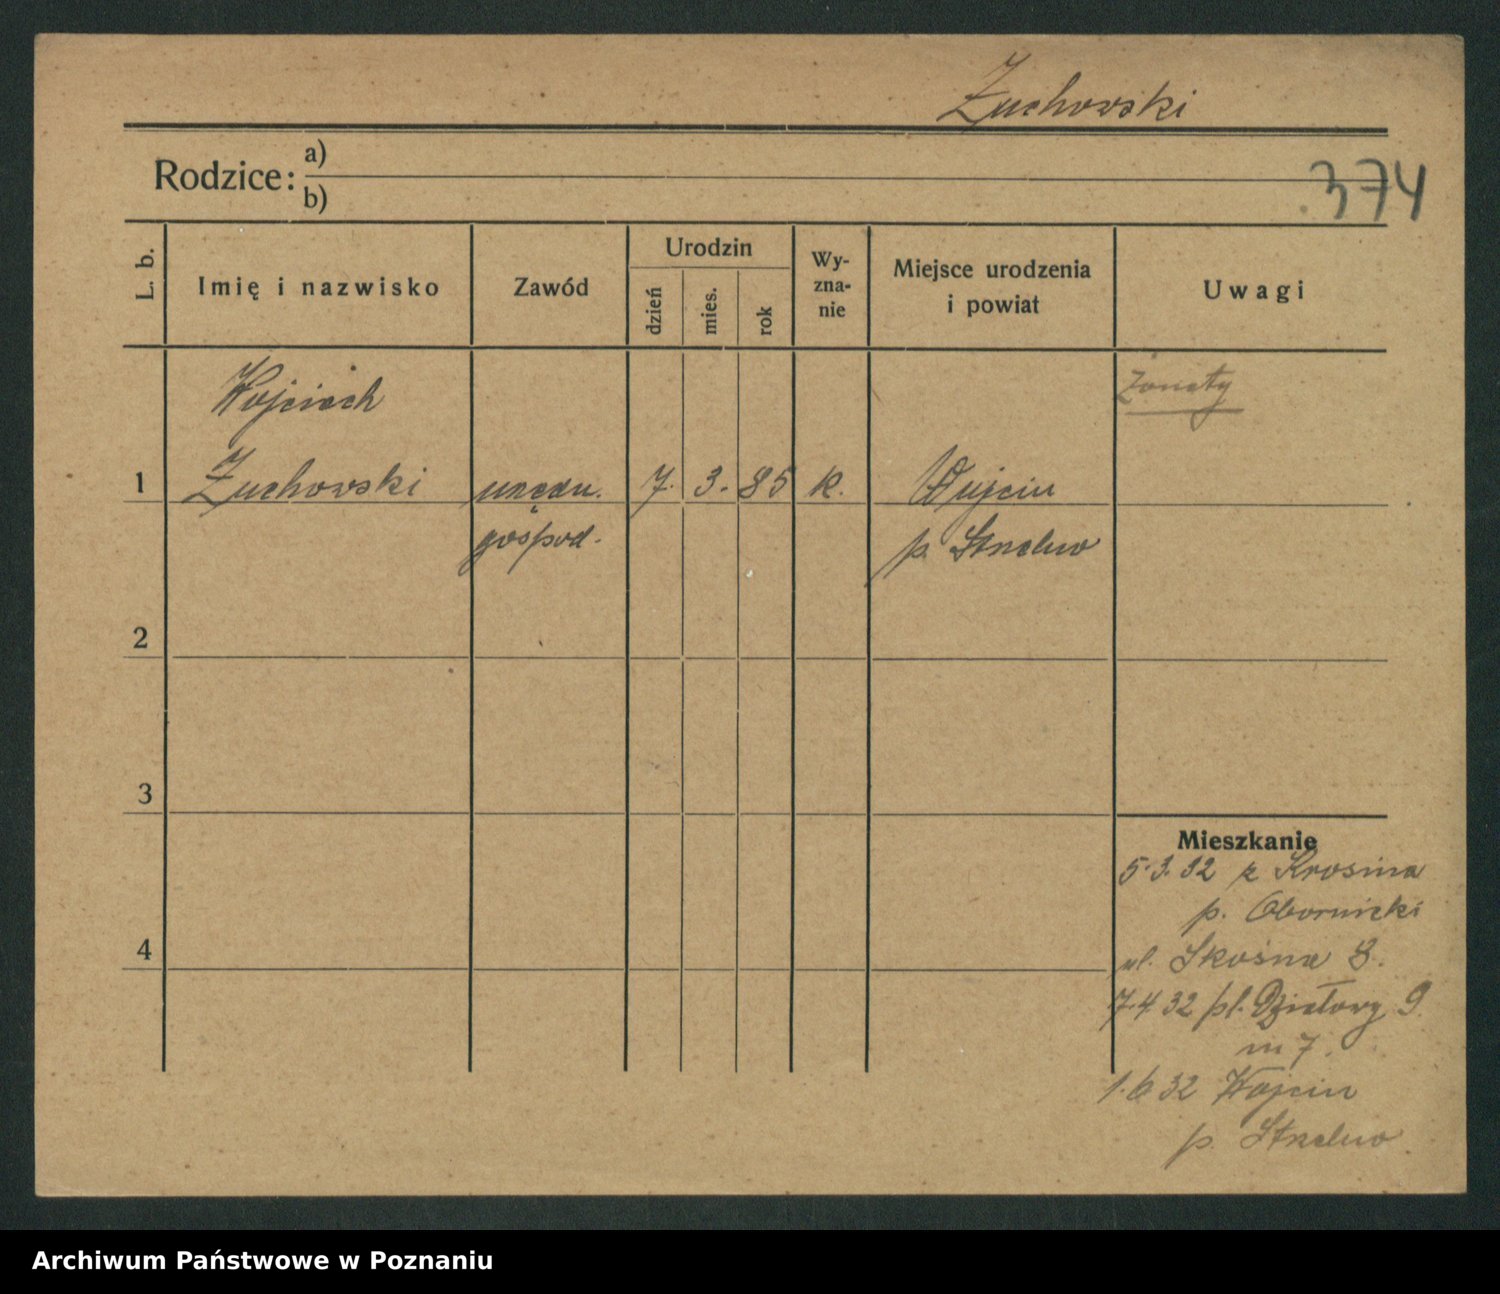 Żuchowski
Rodzice: a)
b)
374
L. b.
Imię i nazwisko
Zawód
Urodzin
dzień
mies.
rok
Wy-
zna-
nie
Miejsce urodzenia
i powiat
Uwagi
Wojciech
żonaty
1 Żuchowski urzędn. 7. 3. 85 k. Wójcin
gospod. p. Strzelno
2
3
Mieszkanie
5.3.32 z Krosina
p. Obornicki
4
ul. Skośna 8.
7.4 32 pl. Działowy 9.
m 7.
1.6 32 Wójcin
p. Strzelno
Archiwum Państwowe w Poznaniu